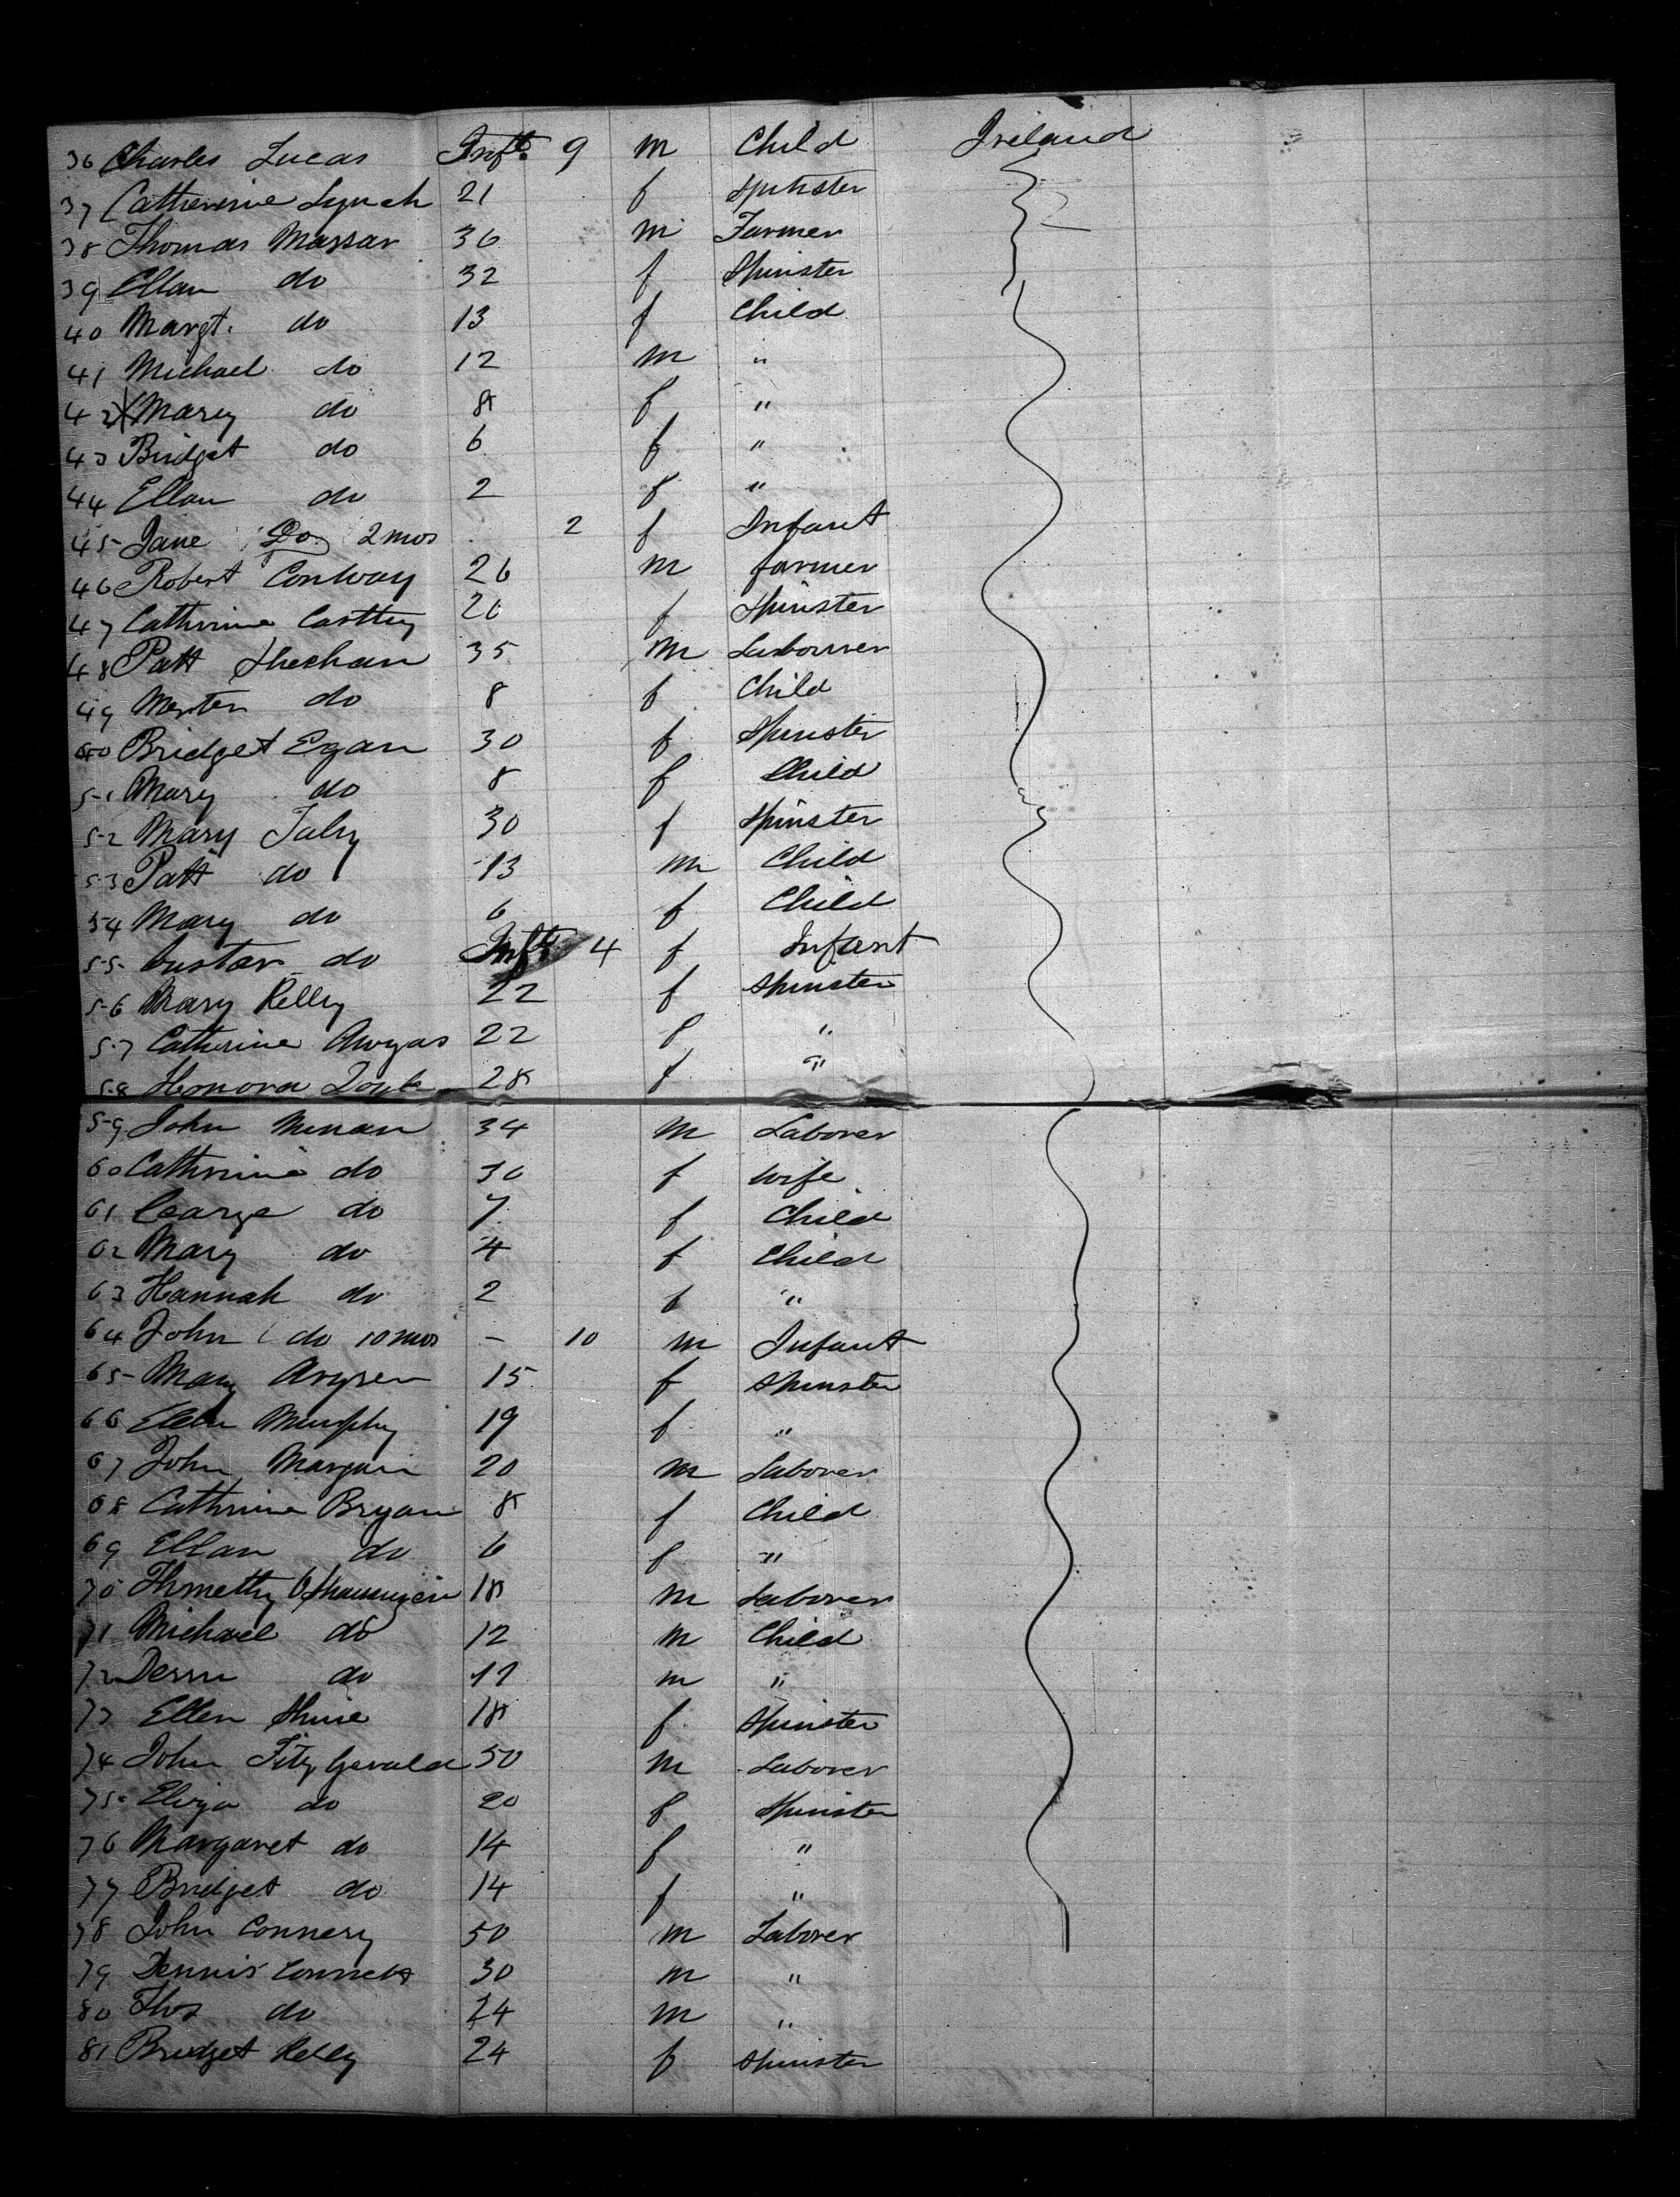 36 Charles Lucas Inft. 9 m Child Ireland
37 Catherine Lynch 21 f Spinster
38 Thomas Massar 36 m Farmer
39 Ellan do 32 f Spinster
40 Margt. do 13 f Child
41 Michael do 12 m "
42 X Mary do 8 f "
43 Bridget do 6 f "
44 Ellan do 2 f "
45 Jane Do 2 mos 2 f Infant
46 Robert Conway 26 m farmer
47 Catherine 26 f Spinster
48 Patt Sheehan 35 m Labourer
49 do 8 f Child
50 Bridget Egan 30 f Spinster
51 Mary do 8 f Child
52 Mary 30 f Spinster
53 Patt do 13 m Child
54 Mary do 6 f Child
55 do Inft. 4 f Infant
56 Mary Kelly 22 f Spinster
57 Catherine 22 f "
58 Honora 28 f "
59 John 34 m Laborer
60 Cathrine do 30 f wife
61 do 7 f Child
62 Mary do 4 f Child
63 Hannah do 2 f "
64 John do 10 mos - 10 m Infant
65 Mary 15 f Spinster
66 Ellen Murphy 19 f "
67 John 20 m Laborer
68 Cathrine Bryan 8 f Child
69 Ellan do 6 f "
70 18 m Laborer
71 Michael do 12 m Child
72 do 11 m "
73 Ellen 18 f Spinster
74 John Fitzgerald 50 m Laborer
75 Eliza do 20 f Spinster
76 Margaret do 14 f "
77 Bridget do 14 f "
78 John Connery 50 m Laborer
79 Dennis 30 m "
80 Thos do 24 m "
81 Bridget Kelly 24 f Spinster